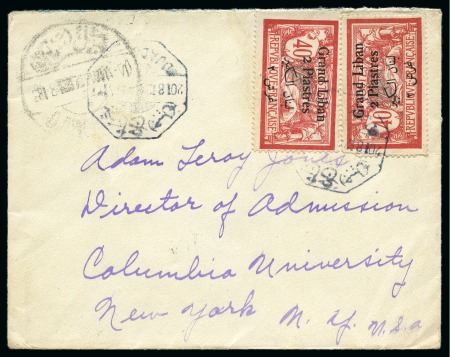 40c
REPUBLIQUE FRANÇAISE
Grand Liban
2 Piastres
40c
REPUBLIQUE FRANÇAISE
Grand Liban
2 Piastres
Adam Leroy Jones
Director of Admission
Columbia University
New York N. Y. U.S.a